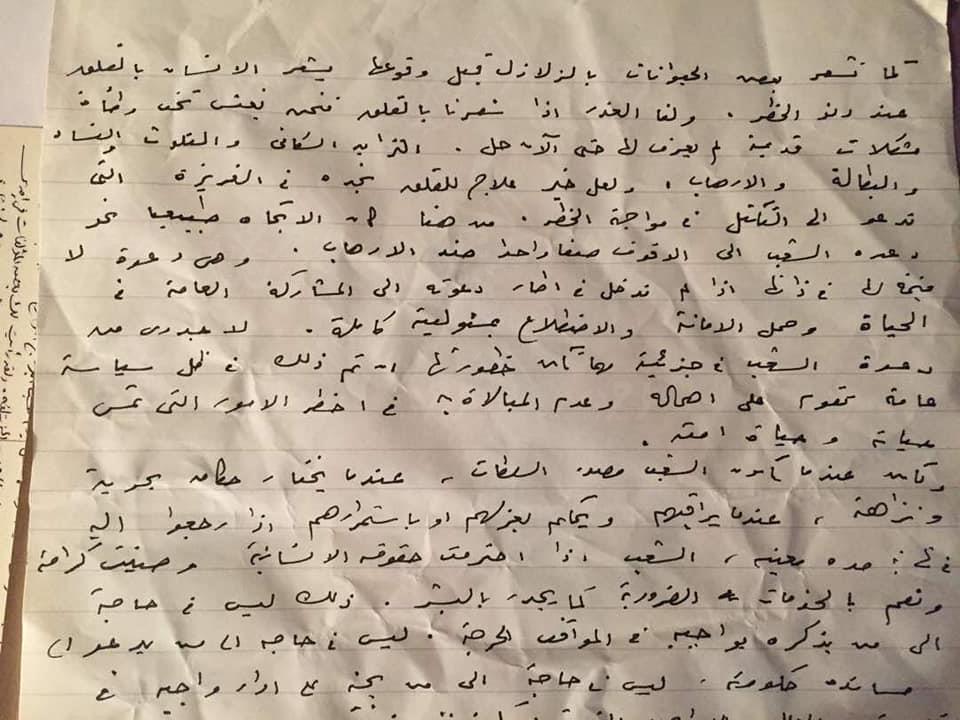 كما تشعر بعض الحيوانات بالزلازل قبل وقوعها يشعر الانسان بالقلق
عند دنو الخطر . ولنا العذر اذا شعرنا بالقلق فنحن نعيش تحت وطأة
مشكلات قديمة لم يعرف لها حتى الآن حل . التزايد السكانى والتلوث والفساد
والبطالة والارهاب ، ولعل خير علاج للقلق نجده فى الغريزة التى
تدعو الى التكاتل فى مواجهة الخطر . من هنا كان الاتجاه طبيعيا نحو
دعوة الشعب الى الوقوف صفا واحدا ضد الارهاب . وهى دعوة لا
قيمة لها فى ذاتها اذا لم تدخل فى اطار دعوته الى المشاركة العامة فى
الحياة وحمل الامانة والاضطلاع بمسئولية كاملة . لا جدوى من
دعوة الشعب فى جزئية مهما تكن خطورتها ان تم ذلك فى ظل سياسة
عامة تقوم على اهماله وعدم المبالاة به فى اخطر الامور التى تمس
حياته وحياة امته .
عندما يكون الشعب مصدر السلطات ، عندما يختار حكامه بحرية
ونزاهة ، عندما يراقبهم ويحكم بعزلهم او باستمرارهم اذا رجعوا اليه
فى نهاية مدة معينة ، الشعب اذا احترمت حقوقه الانسانية وصينت كرامته
ونعم بالخدمات الضرورية كما يجدر بالبشر . ذلك ليس فى حاجة
الى من يذكره بواجبه فى المواقف الحرجة . ليس فى حاجه الى من يدعو الى
مساندة حكومته ، ليس فى حاجة الى من يحثه على اداء واجبه فى